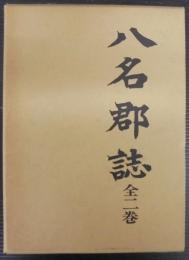 八名郡誌
全二巻